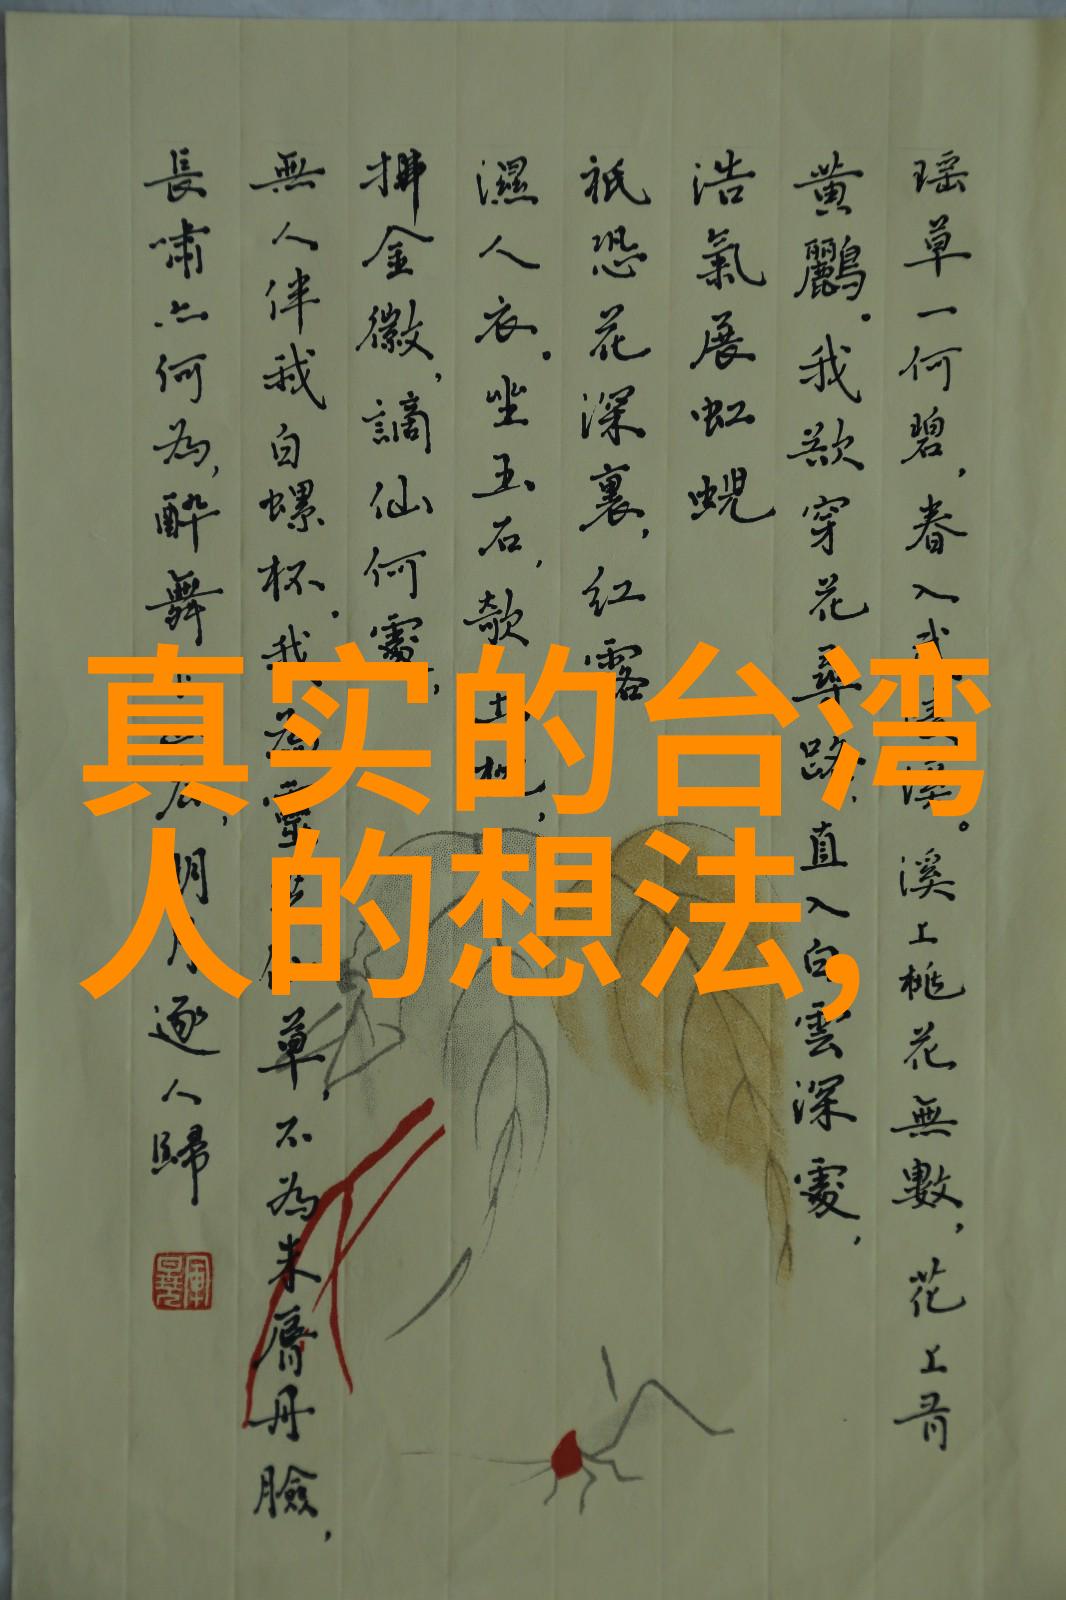 瑶草一何碧,春入武陵溪。溪上桃花無數,花上有
黄鸝。我欲穿花尋路,直入白雲深處,
浩氣展虹蜺
祇恐花深裏,紅露
濕人衣。坐玉石,欹玉枕,
拂金徽,謫仙何處,
無人伴我白螺杯。我為靈芝仙草,不為朱脣丹臉,
長嘯亦何為,醉舞下山去,明月逐人歸
真实的台湾
人的想法,